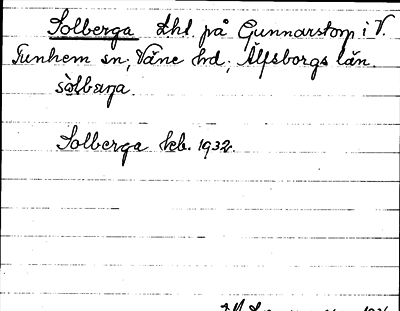 Solberga lht. på Gunnarstorp i V.
Tunhem sn; Väne hd; Älfsborgs län
sòlbærja.
Solberga kb. 1932.